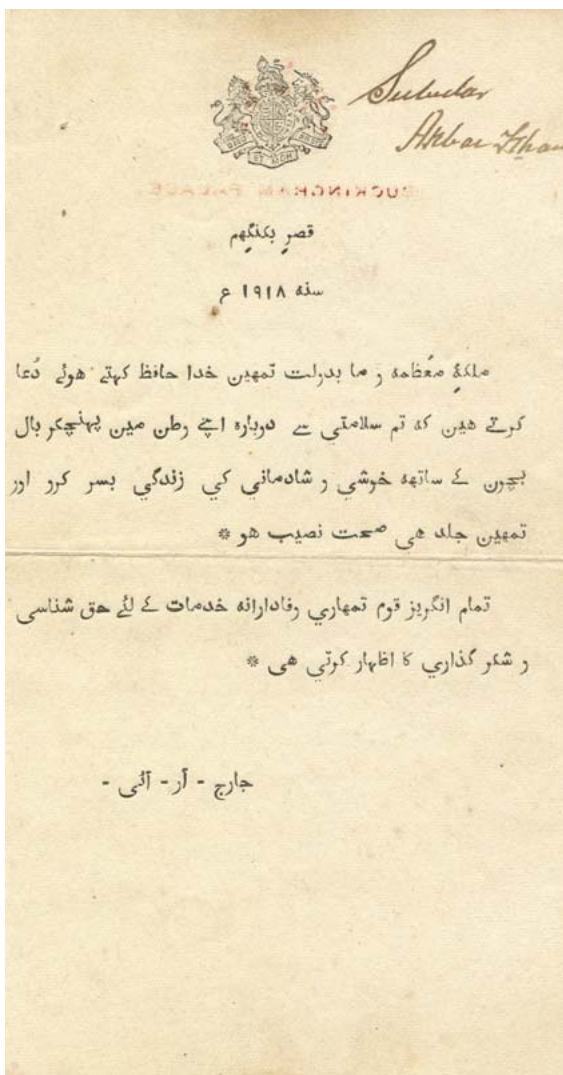 Subedar
Akbar Khan
BUCKINGHAM PALACE
قصرِ بکنگھم
سنہ ۱۹۱۸ ع
ملکۂ معُظمہ و ما بدولت تمھین خدا حافظ کہتے ھوئے دُعا
کرتے ھین کہ تم سلامتی سے دوبارہ اپنے وطن مین پہنچکر بال
بچون کے ساتھہ خوشي و شادماني کي زندگي بسر کرو اور
تمھین جلد ھی صحت نصیب ھو *
تمام انگریز قوم تمھاري وفادارانہ خدمات کے لئے حق شناسی
و شکر گذاري کا اظہار کرتي ھی *
جارج - آر - آئی -